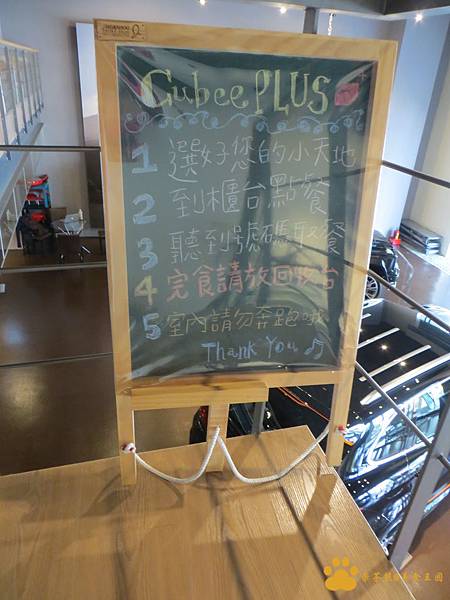 Cubee PLUS
1 選好您的小天地
2 到櫃台點餐
3 聽到號碼取餐
4 完食請放回收台
5 室內請勿奔跑哦
Thank You